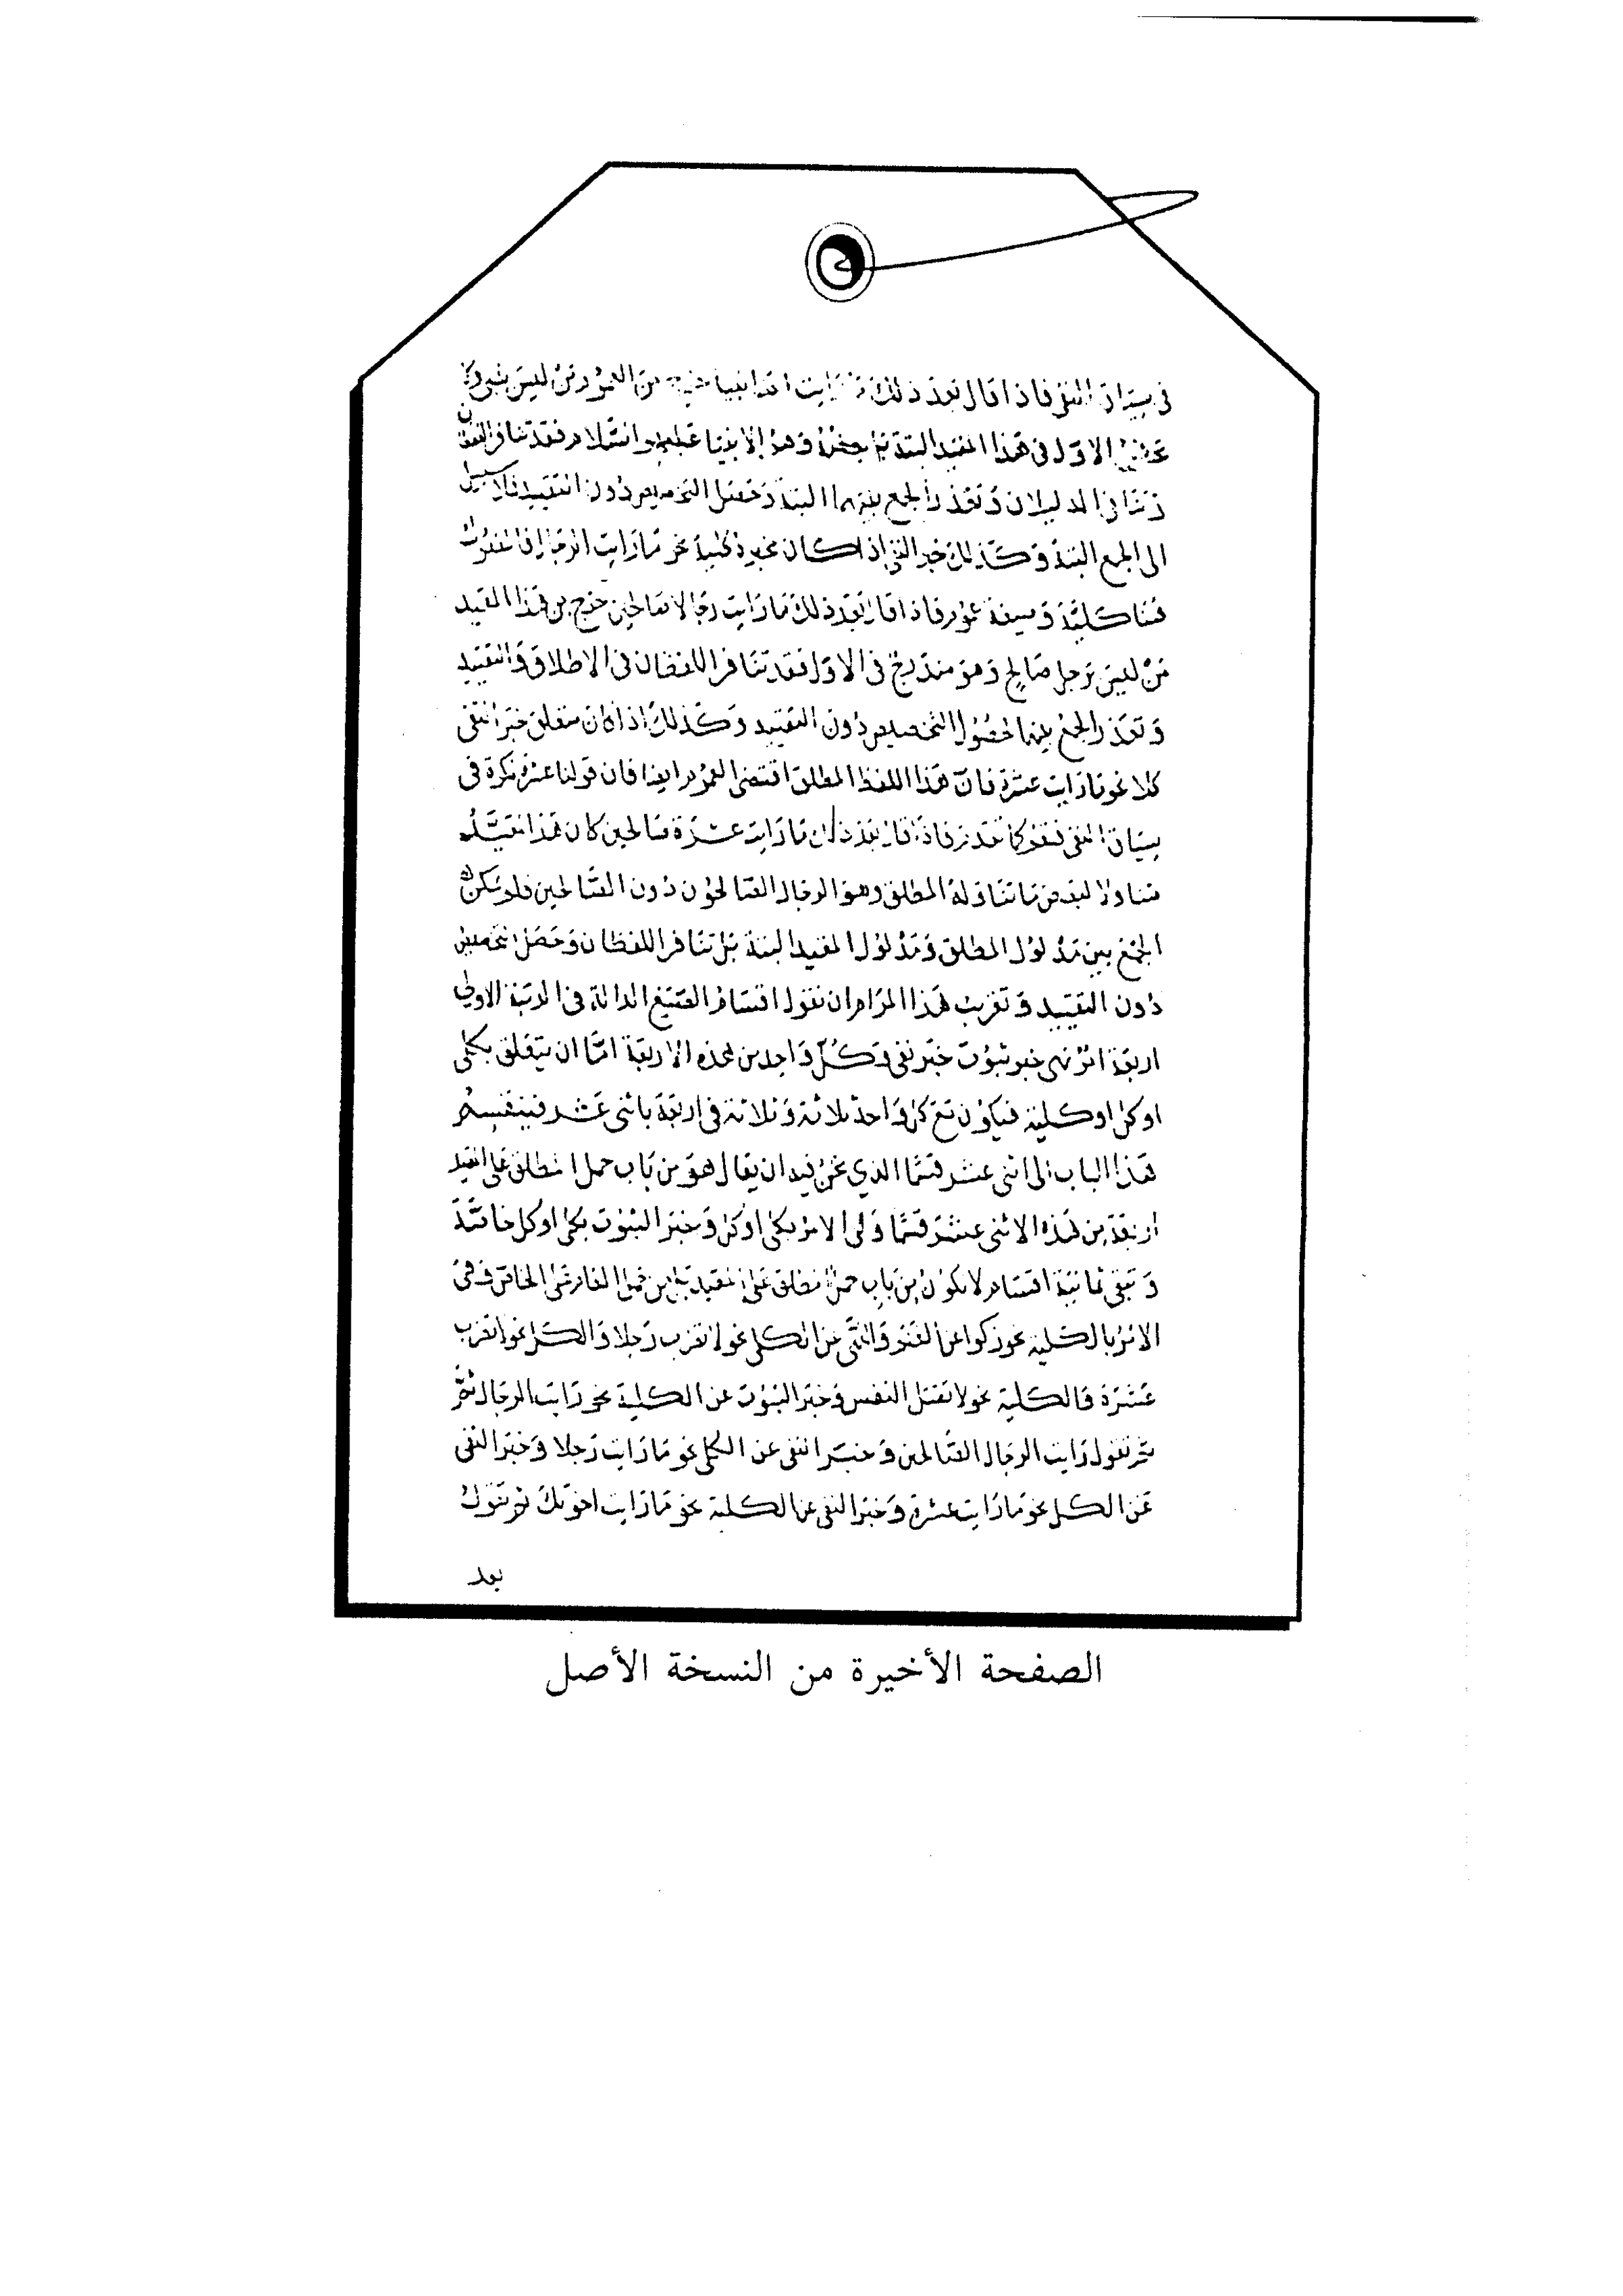 في سياق النفي فاذا قال بعد ذلك ما رايت احدا نبيا خرج من العموم من ليس بنبي وكا
الاول في هذا المقيد البتة بل بعضه وهم الانبيا عليهم السلام فقد تنافر اللفظان
وتنافى الدليلان وتعذر الجمع بينهما البتة وحصل التخصيص دون التقييد فلا سبيل
الى الجمع البتة وكذلك خبر النفي اذا كان مخبره كلية نحو ما رايت الرجال فالمنفي
هنا كلية وصيغة عموم فاذا قال بعد ذلك ما رايت رجالا صالحين خرج من هذا القيد
من ليس برجل صالح وهو مندرج في الاول فقد تنافر اللفظان في الاطلاق والتقييد
وتعذر الجمع بينهما لحصول التخصيص دون التقييد وكذلك اذا كان متعلق خبر النفي
كلا نحو ما رايت عشرة فان هذا اللفظ المطلق اقتضى العموم ايضا فان قولنا عشرة نكرة في
سياق النفي فتعم كما تقدم فاذا قال بعد ذلك ما رايت عشرة صالحين كان هذا المقيد
متناولا لبعض ما تناوله المطلق وهو الرجال الصالحون دون الصالحين فلم يمكن
الجمع بين مدلول المطلق ومدلول المقيد البتة بل تنافر اللفظان وحصل التخصيص
دون التقييد وتقريب هذا المرام ان نقول اقسام الصيغ الدالة في الرتبة الاولى
اربعة امر نهي خبر ثبوت خبر نفي وكل واحد من هذه الاربعة اما ان يتعلق بكلي
او كل او كلية فيكون مع كل واحد ثلاثة وثلاثة في اربعة باثني عشر فينقسم
هذا الباب الى اثني عشر قسما الذي نحن فيه ان يقال هو من باب حمل المطلق على المقيد
اربعة من هذه الاثني عشر قسما وهي الامر بكلي او كل وخبر الثبوت بكلي او كل خاصة
وتبقى ثمانية اقسام لا يكون من باب حمل المطلق على المقيد بل من حمل العام على الخاص وهي
الامر بالكلية نحو زكوا عن الغنم والنهي عن الكلي نحو لا تضرب رجلا والكل نحو لا تضرب
عشرة والكلية نحو لا تقتل النفس وخبر الثبوت عن الكلية نحو رايت الرجال ثم
ثم نقول رايت الرجال الصالحين وخبر النفي عن الكلي نحو ما رايت رجلا وخبر النفي
عن الكل نحو ما رايت عشرة وخبر النفي عن الكلية نحو ما رايت اخوتك ثم تقول
بعد
الصفحة الأخيرة من النسخة الأصل